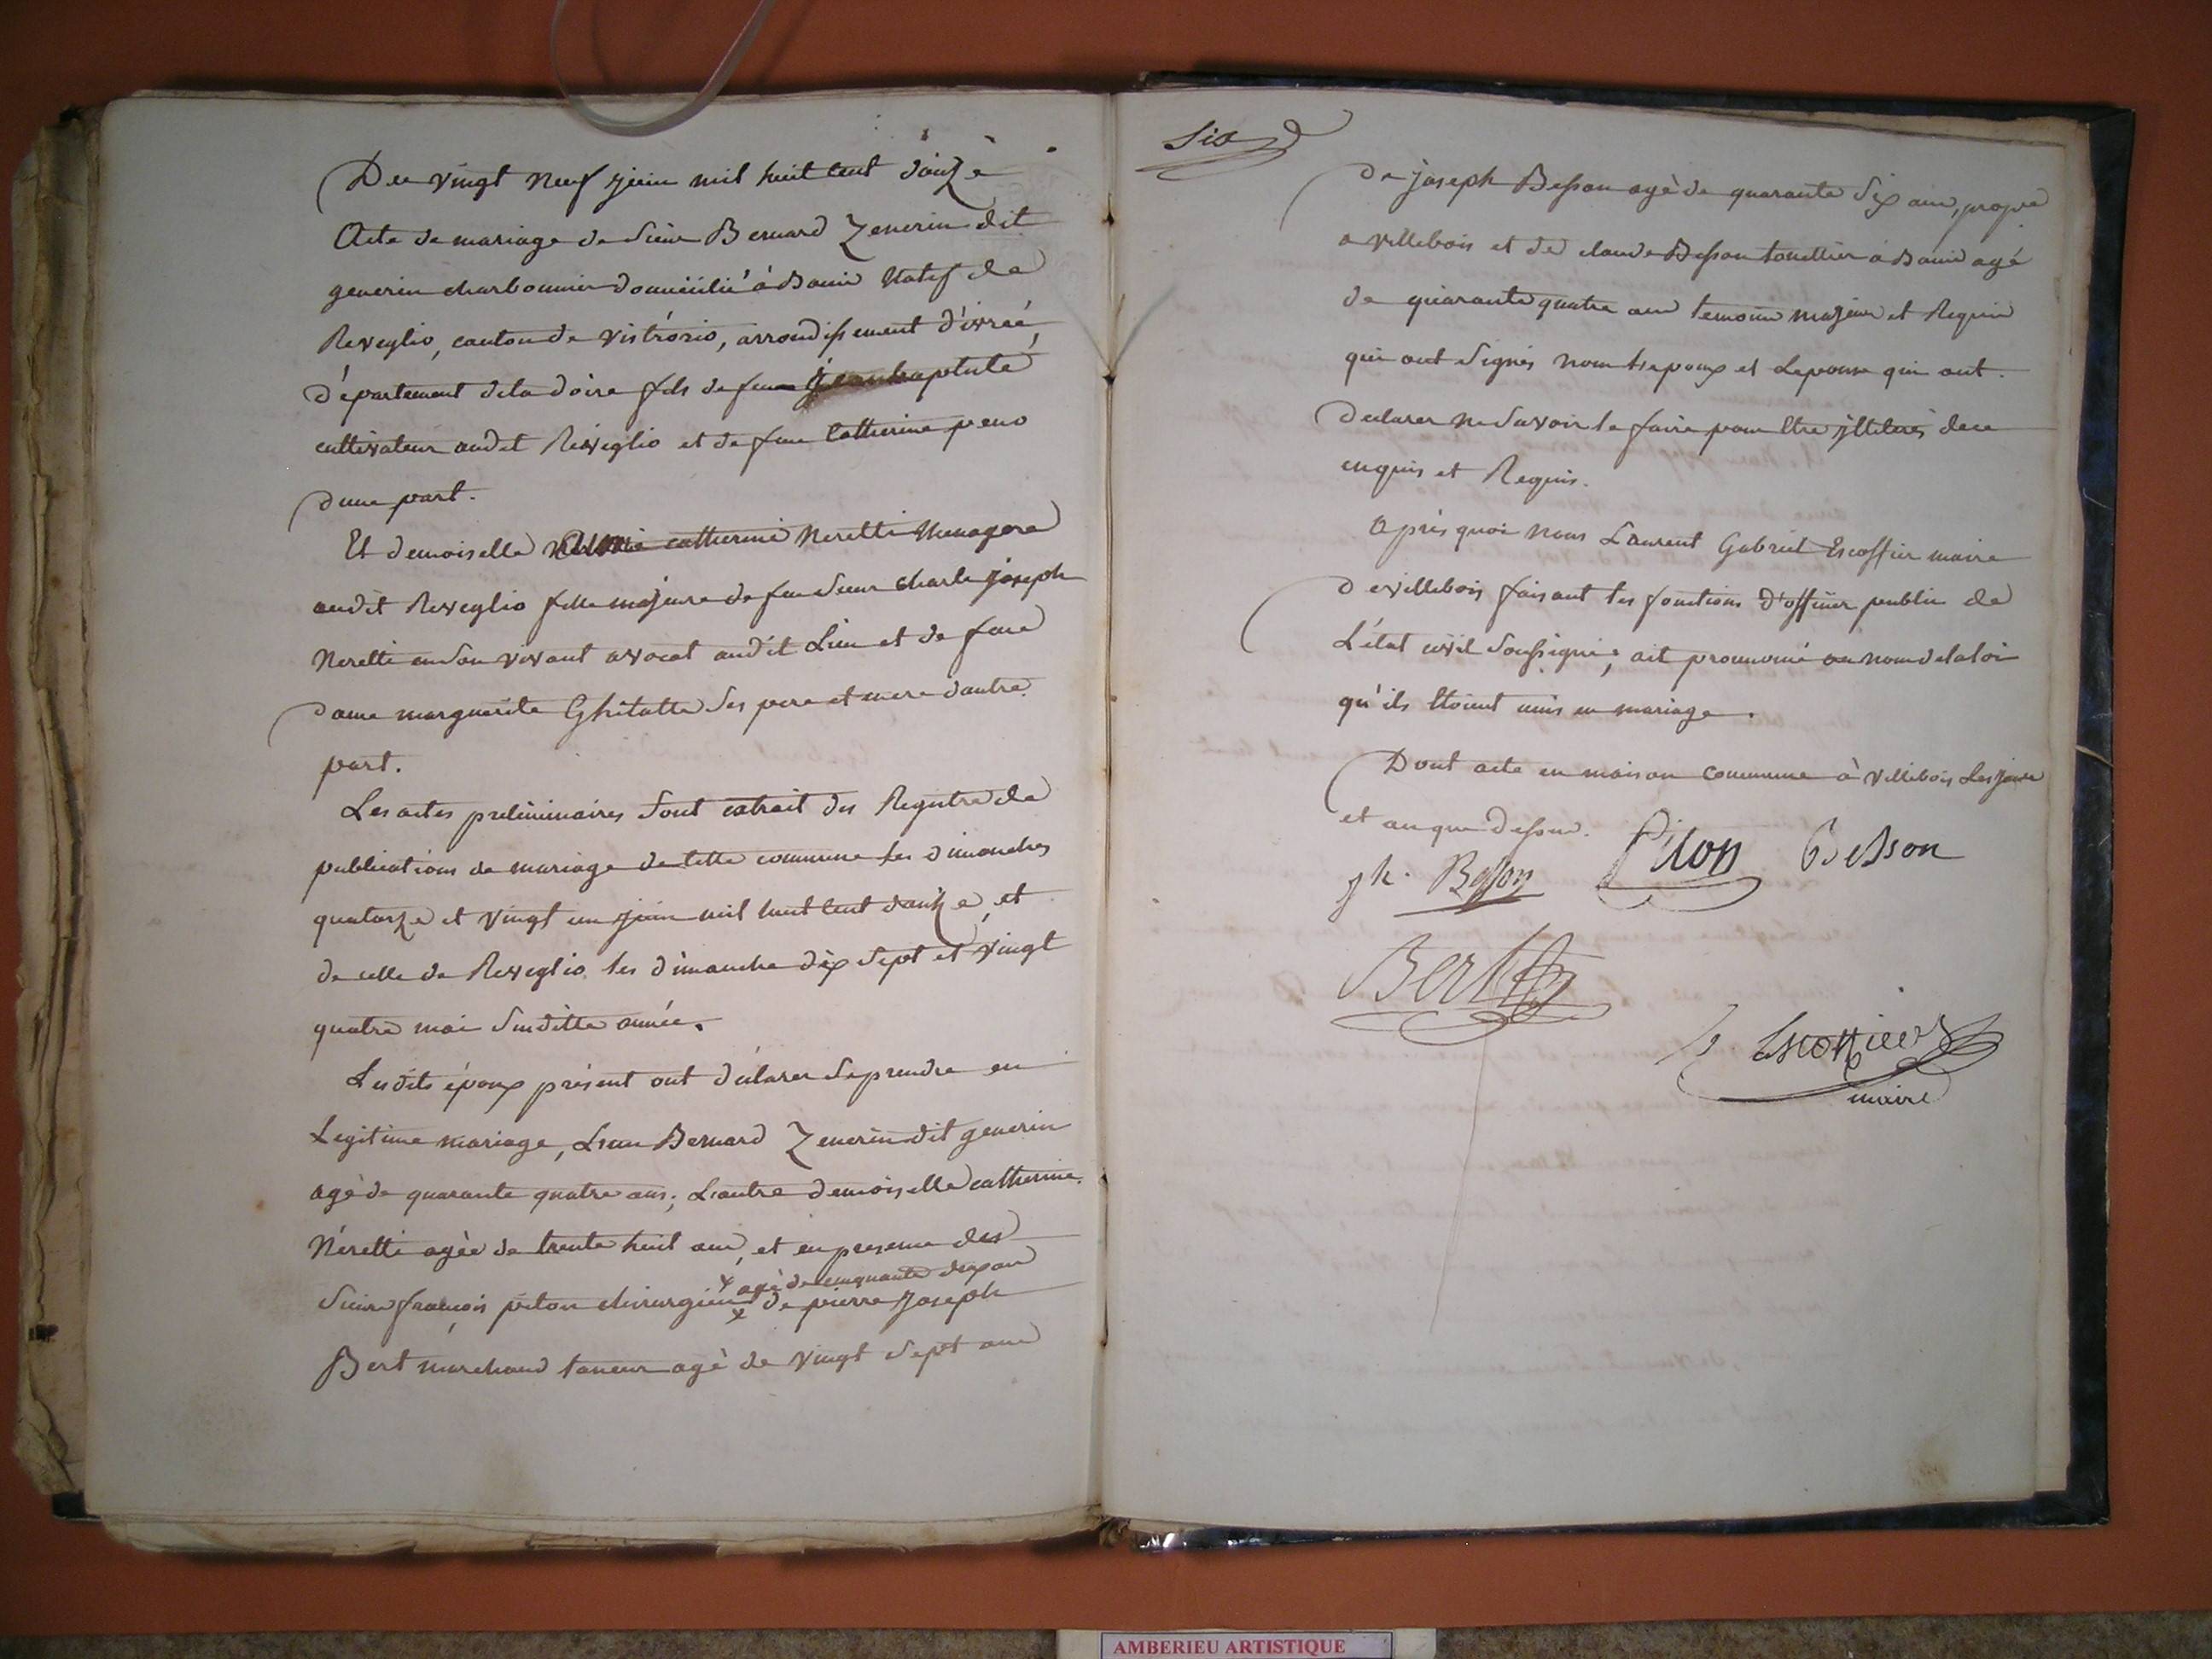 Du vingt neuf juin mil huit cent douze
Acte de mariage de Sieur Bernard Zenerin dit
generin charbonnier domicilié à Bouis Natif de
Reveglio, canton de vistrorio, arrondissement d'ivrée,
département dela doire fils de feu jeanbaptiste
cultivateur audit Reveglio et de feue Catherine peno
dune part.
Et demoiselle catherine Neretti Menagere
audit Reveglio fille majeure de feu Sieur charle joseph
Neretti en Son vivant avocat audit Lieu et de feue
dame marguerite Ghitatta Ses pere et mere dautre
part.
Les actes preliminaires Sont extrait des Registre de
publications de mariage de cette commune les dimanches
quatorze et vingt un juin mil huit cent douze, et
de celle de Reveglio les dimanche dix Sept et vingt
quatre mai Susditte année.
Lesdits époux présent ont déclarer Se prendre en
Legitime mariage, L'un Bernard Zenerin dit generin
agé de quarante quatre ans; L'autre demoiselle catherine
Néretti agée de trente huit ans, et en presence des
x agé de cinquante ans
Sieurs françois piton chirurgien x de pierre Joseph
Bert marchand taneur agé de vingt Sept ans
Six
De joseph Besson agé de quarante Six ans, propre
a villebois et de claude Besson tonellier à Bouis agé
de quarante quatre ans temoins majeurs et Requis
qui ont Signés non Lepoux et Lepouse qui ont
declarer ne Savoir le faire pour être illiterés de ce
enquis et Requis.
Après quoi nous Laurent Gabriel Escoffier maire
de villebois faisant les fonctions d'officier public de
L'état civil Soussigné, ait prononcé au nom de la loi
qu'ils étoient unis en mariage.
Dont acte en maison commune à villebois Les jour
et an que dessus.
jh. Besson Piton Besson
Bert
Escoffier
maire
AMBERIEU ARTISTIQUE